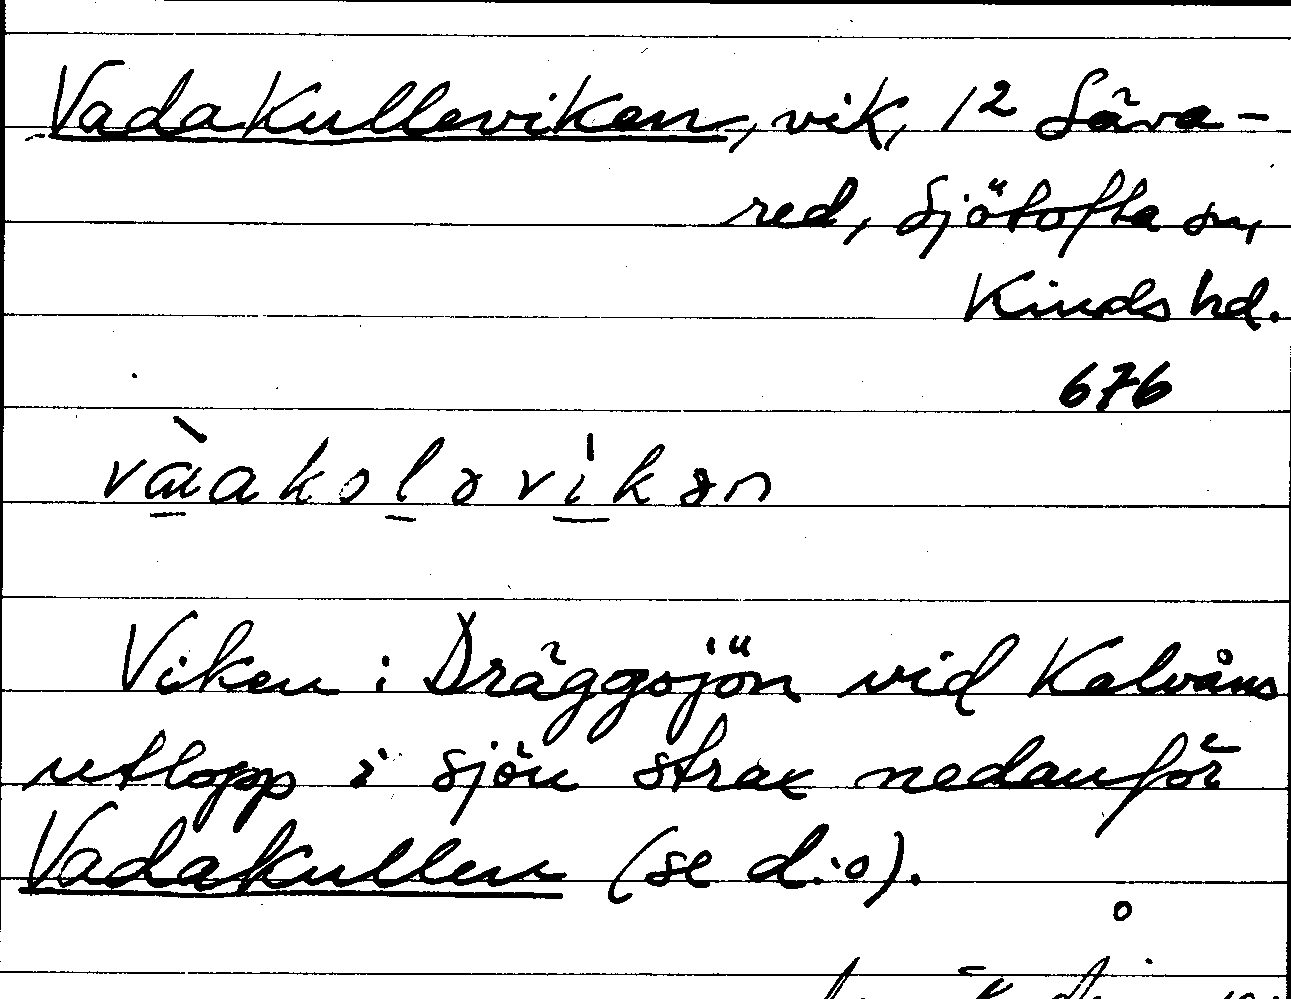 Vadakulleviken, vik, 1² Såra-
red, Sjötofta sn,
Kinds hd.
676
Viken i Dräggsjön vid Kalvåns
utlopp i sjön strax nedanför
Vadakullen (se d:o).